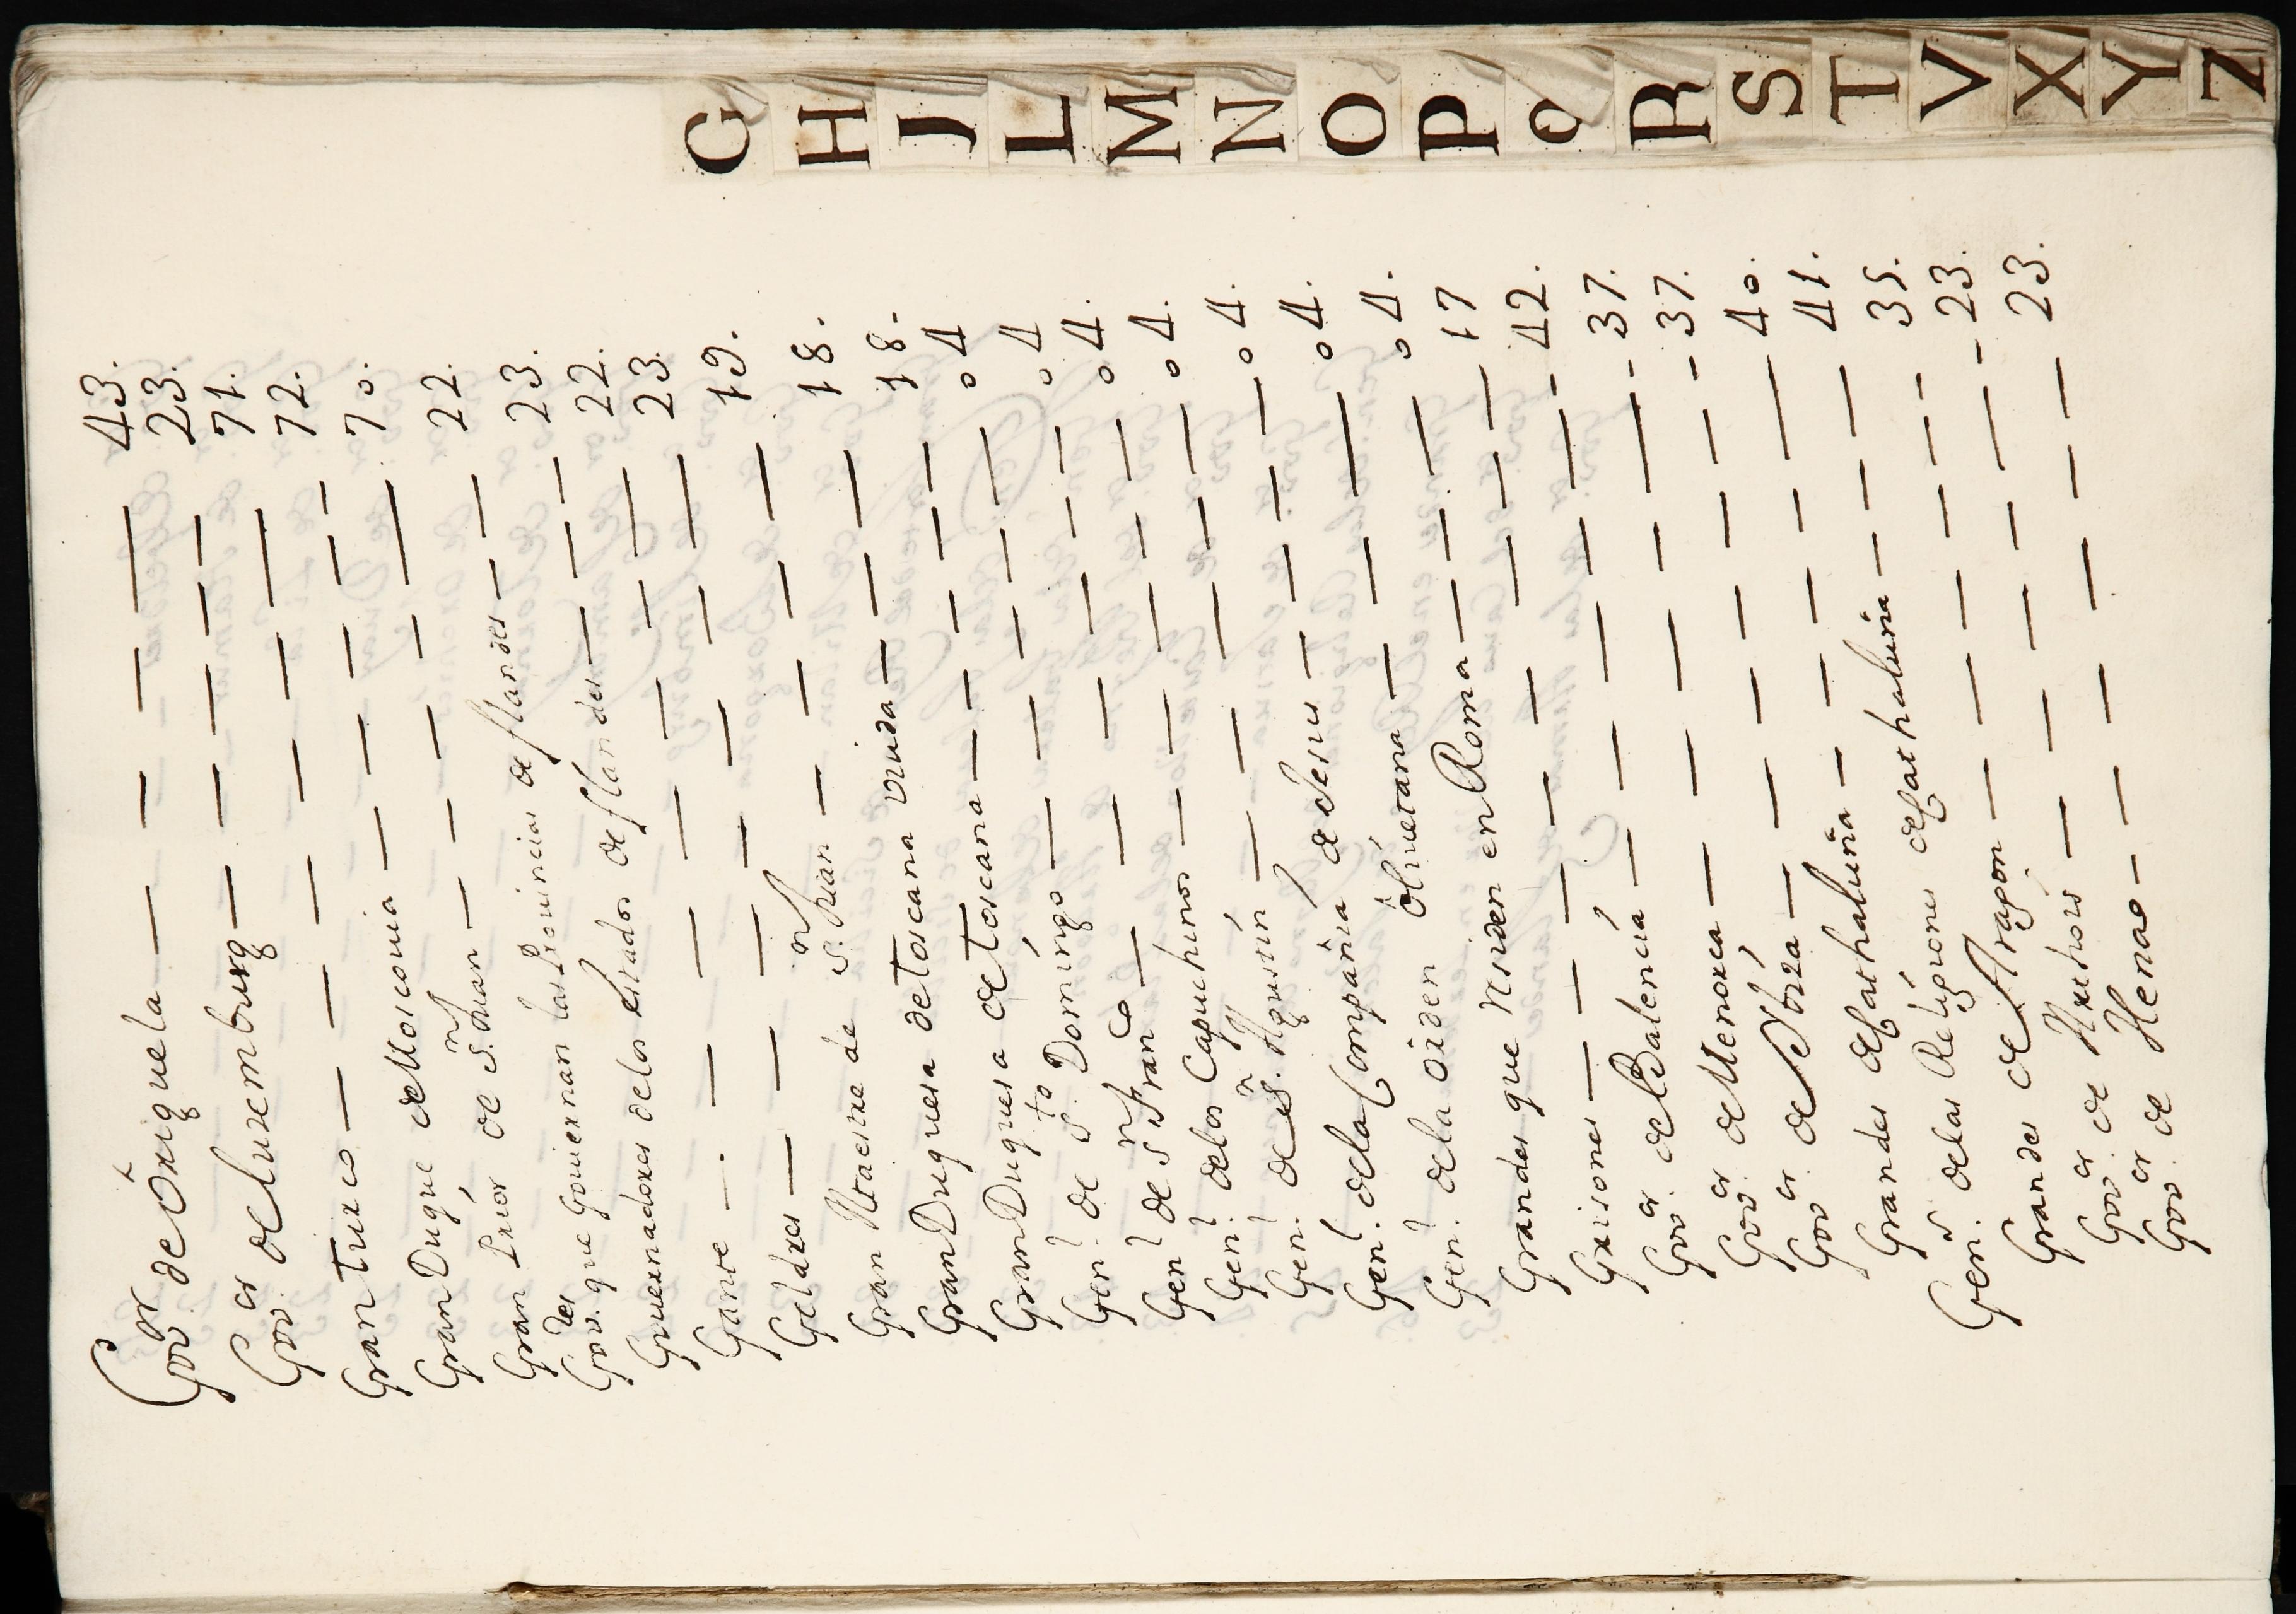 Gov.or de Óriguela — 43.
Gov.or de Luxemburg — 23.
Gran turco — 71.
Gran Duque de Moscouia — 72.
Gran Prior de S.n Juan — 70.
Gov.des que Gouiernan las Prouincias de flandes — 22.
Gouernadores de los estados de flandes — 23.
Gante — 22.
Geldres — 23.
Gran Maestre de S.n Juan — 19.
Gran Duquesa de Toscana viuda — 18.
Gran Duquesa de Toscana — 18.
Gen.l de S.to Domingo — 04
Gen.l de S.n Fran.co — 04
Gen.l de los Capuchinos — 04.
Gen.l de S.n Agustin — 04.
Gen.l de la Compañia de Jesus — 04.
Gen.l de la orden Oliuetana — 04.
Grandes que Residen en Roma — 04.
Grisones — 17
Gov.or de Balencia — 42.
Gov.or de Menorca — 37.
Gov.or de Ibiza — 37.
Grandes de Cathaluña — 40.
Gen.s de las Religiones de Cathaluña — 41.
Grandes de Aragon — 35.
Gov.or de Arthois — 23.
Gov.or de Henao — 23.
G
H
J
L
M
N
O
P
Q
R
S
T
V
X
Y
Z